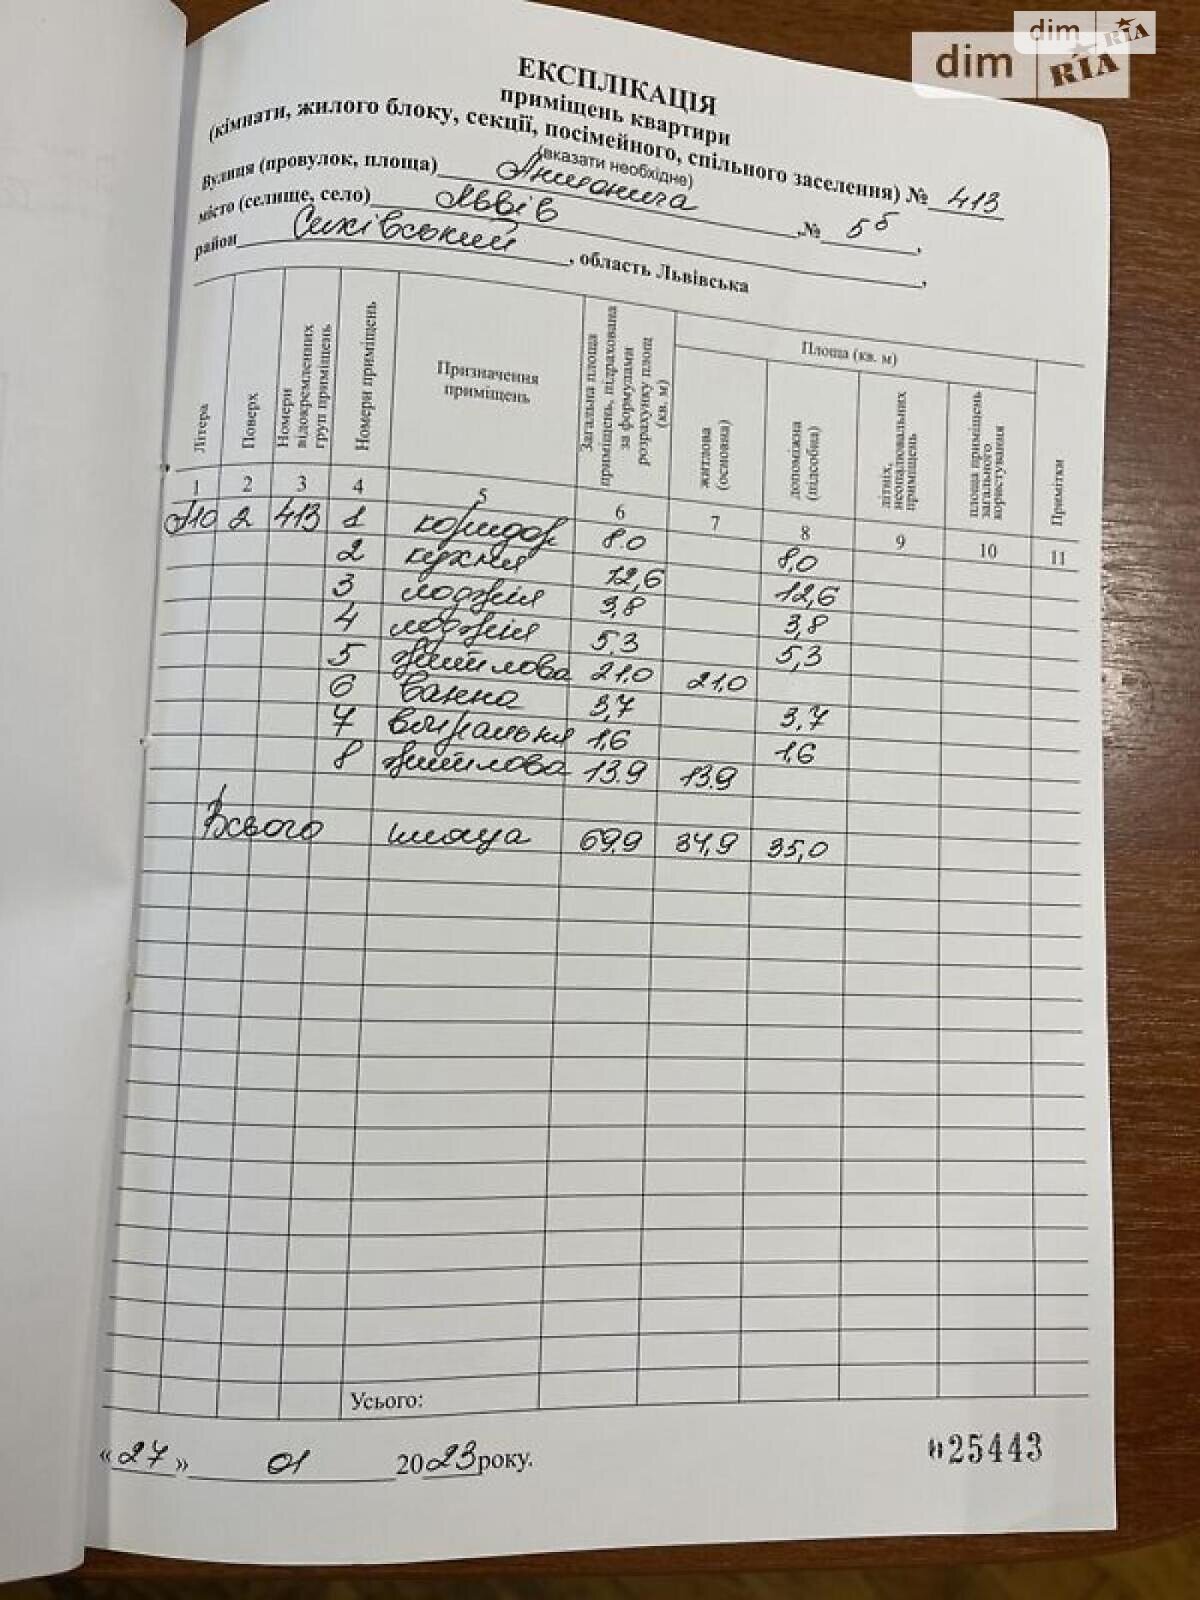 dim RIA
dim RIA
ЕКСПЛІКАЦІЯ
приміщень квартири
(кімнати, жилого блоку, секції, посімейного, спільного заселення) № 413
(вказати необхідне)
Вулиця (провулок, площа) , № 5б ,
місто (селище, село) Львів ,
район Сихівський , область Львівська
Літера Поверх Номери відокремлених груп приміщень Номери приміщень Призначення приміщень Загальна площа приміщень, підрахована за формулами розрахунку площ (кв. м) Площа (кв. м) житлова (основна) допоміжна (підсобна) літніх, неопалювальних приміщень площа приміщень загального користування Примітки
1 2 3 4 5 6 7 8 9 10 11
2 413 1 коридор 8.0 8,0
2 кухня 12,6 12,6
3 лоджія 3,8 3,8
4 лоджія 5,3 5,3
5 житлова 21,0 21,0
6 ванна 3,7 3,7
7 вбиральня 1,6 1,6
8 житлова 13.9 13.9
Всього площа 69.9 34,9 35,0
Усього:
« 27 » 01 2023 року.
025443